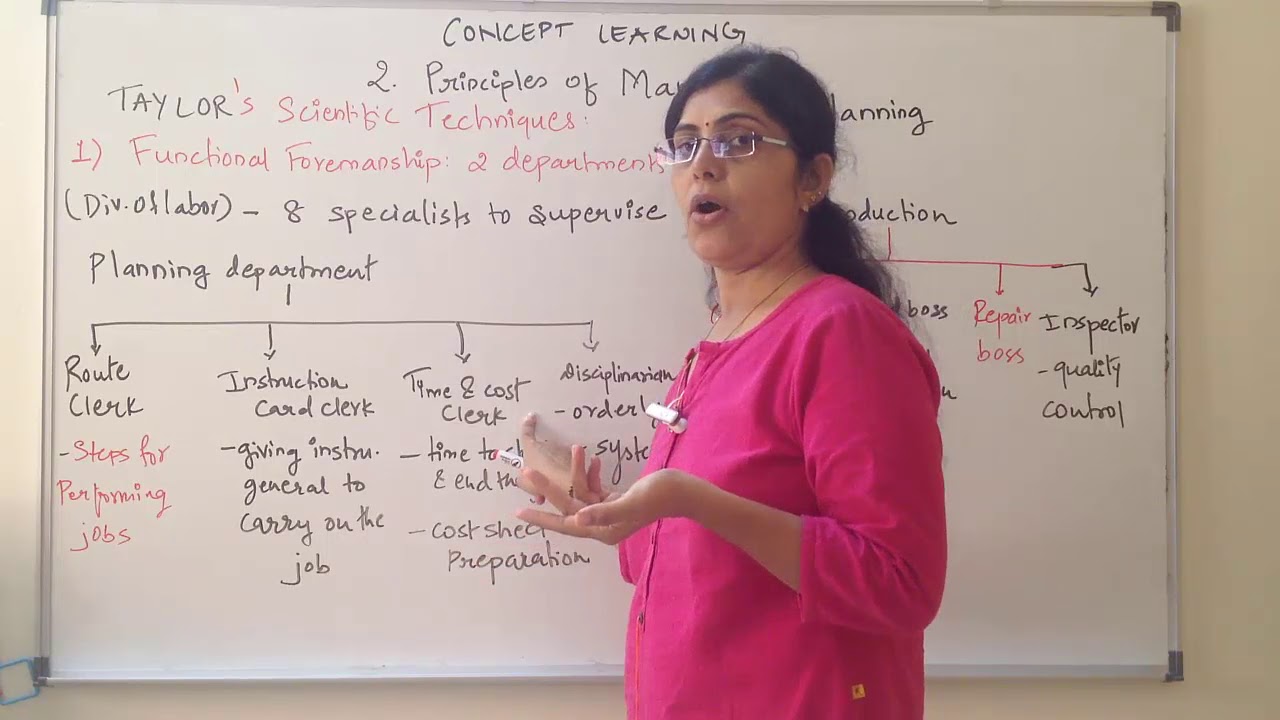 CONCEPT LEARNING
2. Principles of Ma
TAYLOR's Scientific Techniques:
lanning
1) Functional Foremanship: 2 departments
(Div. of labor) - 8 specialists to supervise
oduction
Planning department
Route
Clerk
- Steps for
Performing
jobs
Instruction
Card clerk
- giving instru.
general to
carry on the
job
Time & cost
Clerk
- time to
& end th
- cost sheet
Preparation
Disciplinarian
- orderly
- syste
boss
Repair
boss
Inspector
- quality
control